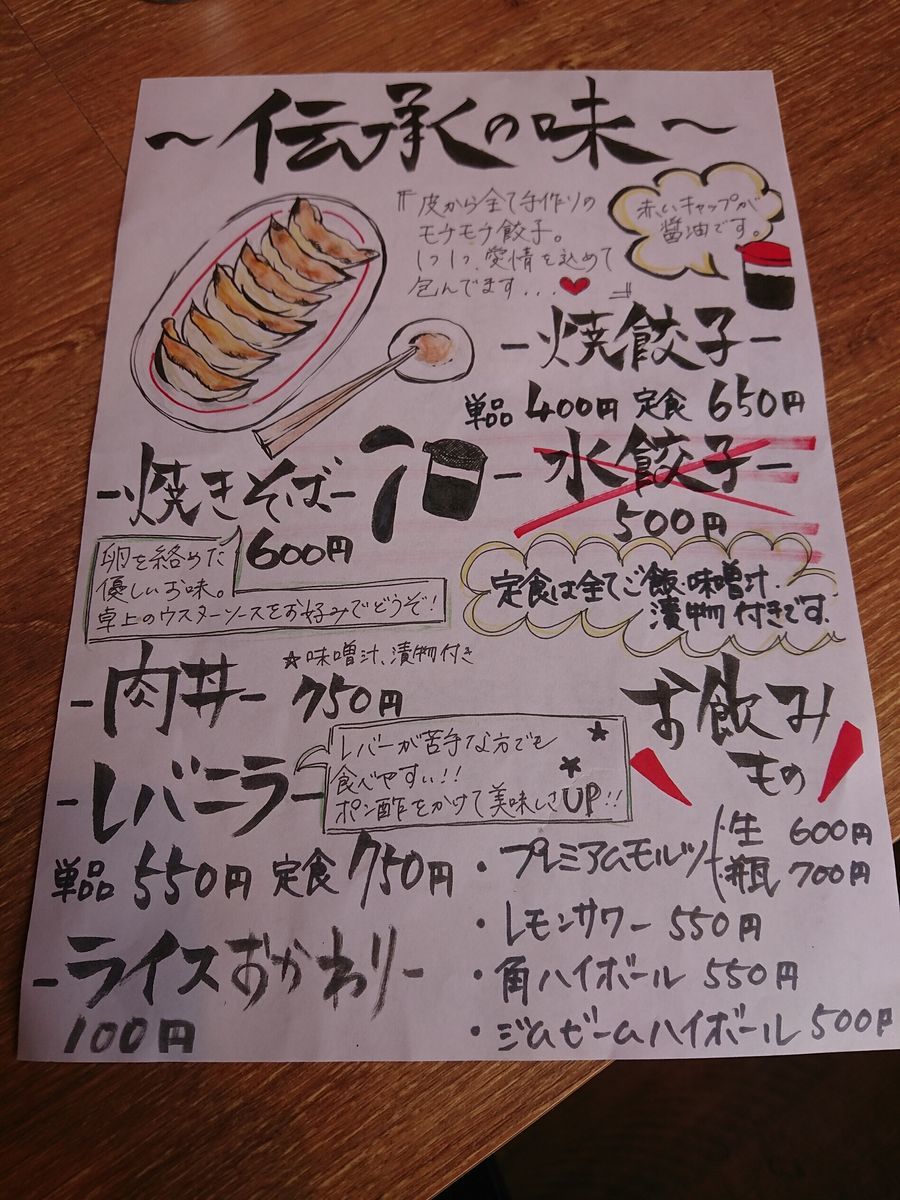 ～伝承の味～
『皮から全て手作りの
モウモウ餃子。
1つ1つ、愛情を込めて
包んでます...❤』
赤いキャップが
醤油です。
-焼餃子-
単品 400円 定食 650円
-水餃子-
500円
-焼きそば-
600円
卵を絡めた
優しいお味。
卓上のウスターソースをお好みでどうぞ!
定食は全てご飯、味噌汁、
漬物付きです。
-肉丼-
☆味噌汁、漬物付き
750円
-レバニラ-
レバーが苦手な方でも
食べやすい!!
ポン酢をかけて美味しさUP!!
単品 550円 定食 750円
-ライスおかわり-
100円
お飲み
もの
・プレミアムモルツ
・生 600円
・瓶 700円
・レモンサワー 550円
・角ハイボール 550円
・ジムビームハイボール 500円